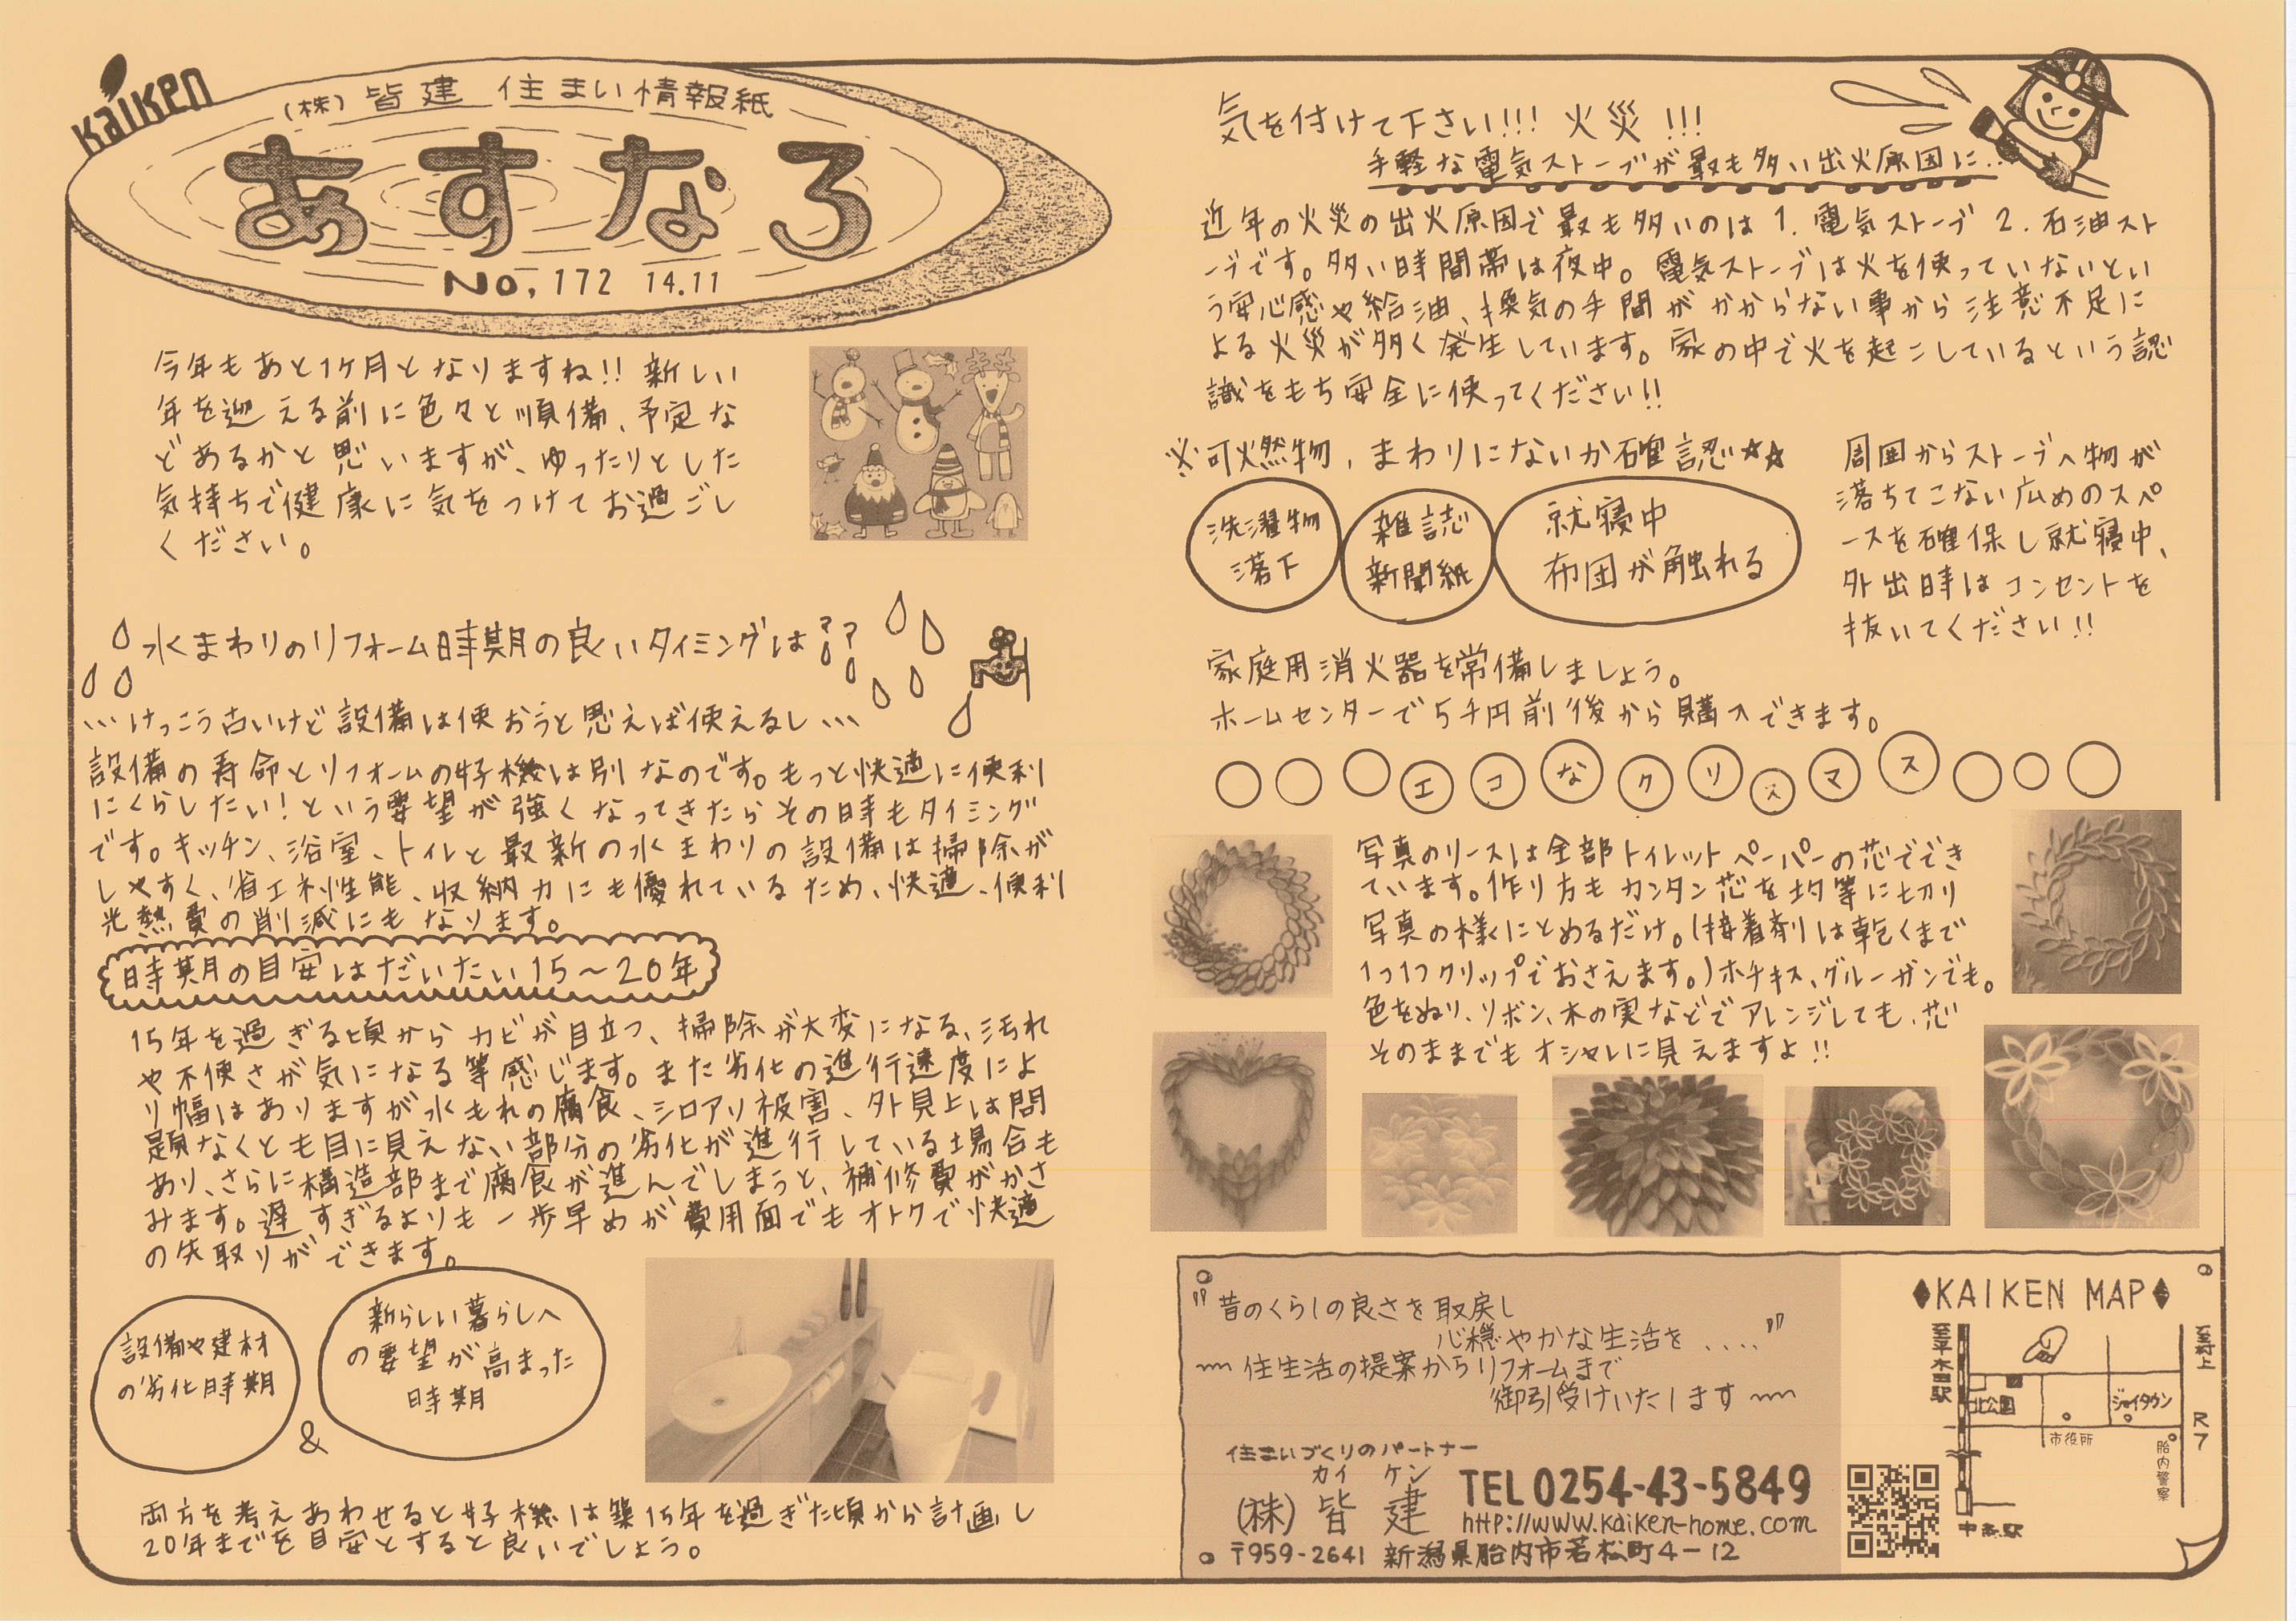 Kaiken
(株)皆建 住まい情報紙
あすなろ
No.172 14.11
今年もあと1ケ月となりますね!! 新しい
年を迎える前に色々と準備、予定な
どあるかと思いますが、ゆったりとした
気持ちで健康に気をつけてお過ごし
ください。
水まわりのリフォーム時期の良いタイミングは??
…けっこう古いけど設備は使おうと思えば使えるし…
設備の寿命とリフォームの好機は別なのです。もっと快適に便利
にくらしたい!という要望が強くなってきたらその時もタイミング
です。キッチン、浴室、トイレと最新の水まわりの設備は掃除が
しやすく、省エネ性能、収納力にも優れているため、快適、便利
光熱費の削減にもなります。
時期の目安はだいたい15～20年
15年を過ぎる頃からカビが目立つ、掃除が大変になる、汚れ
や不便さが気になる等感じます。また劣化の進行速度によ
り幅はありますが水もれの腐食、シロアリ被害、外見上は問
題なくとも目に見えない部分の劣化が進行している場合も
あり、さらに構造部まで腐食が進んでしまうと、補修費がかさ
みます。遅すぎるよりも一歩早めが費用面でもオトクで快適
の先取りができます。
設備や建材
の劣化時期
&
新らしい暮らしへ
の要望が高まった
時期
両方を考えあわせると好機は築15年を過ぎた頃から計画し
20年までを目安とすると良いでしょう。
気を付けて下さい!!! 火災!!!
手軽な電気ストーブが最も多い出火原因に…
近年の火災の出火原因で最も多いのは 1. 電気ストーブ 2. 石油スト
ーブです。多い時間帯は夜中。電気ストーブは火を使っていないとい
う安心感や給油、換気の手間がかからない事から注意不足に
よる火災が多く発生しています。家の中で火を起こしているという認
識をもち安全に使ってください!!
※可燃物、まわりにないか確認☆☆
洗濯物
落下
雑誌
新聞紙
就寝中
布団が触れる
周囲からストーブへ物が
落ちてこない広めのスペ
ースを確保し就寝中、
外出時はコンセントを
抜いてください!!
家庭用消火器を常備しましょう。
ホームセンターで5千円前後から購入できます。
エコなクリスマス
写真のリースは全部トイレットペーパーの芯ででき
ています。作り方もカンタン芯を均等に切り
写真の様にとめるだけ。(接着剤は乾くまで
1つ1つクリップでおさえます。)ホチキス、グルーガンでも。
色をぬり、リボン、木の実などでアレンジしても、芯
そのままでもオシャレに見えますよ!!
"昔のくらしの良さを取戻し
心穏やかな生活を...."
～住生活の提案からリフォームまで
御引受けいたします～
住まいづくりのパートナー
カイ ケン
(株)皆建
TEL 0254-43-5849
http://www.kaiken-home.com
〒959-2641 新潟県胎内市若松町4-12
◆KAIKEN MAP◆
至平木田駅
至村上
北公園
ジョイタウン
R7
市役所
胎内警察
中条駅